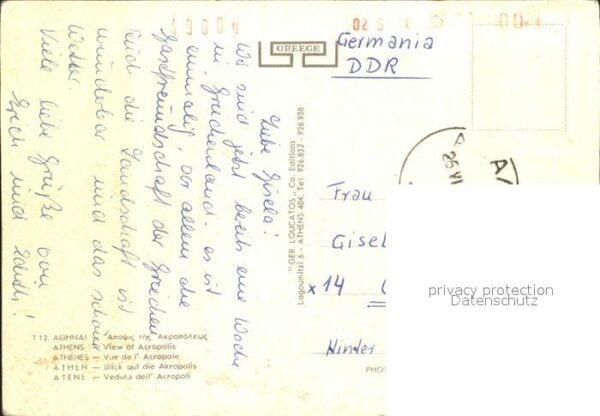 GREECE
Germania
DDR
Liebe Gisela!
Wir sind jetzt bereits eine Woche
in Griechenland. es ist
einmalig, vor allem die
Gastfreundschaft der Griechen
und die Landschaft ist
wunderbar und das schöne
Wetter.
Viele liebe Grüße von
Erich und
"GER. LOUCATOS" Co. Editions
Lagoumitzi 6 - ATHENS 404, Tel. 926.832 - 926.938
Frau
Gisel
x 14
Hinter
privacy protection
Datenschutz
T 12. ΑΘΗΝΑΙ - Ἄποψις τῆς Ἀκροπόλεως
ATHENS - View of Acropolis
ATHÈNES - Vue de l' Acropole
ATHEN - Blick auf die Akropolis
ATENE - Veduta dell' Acropoli
PHO